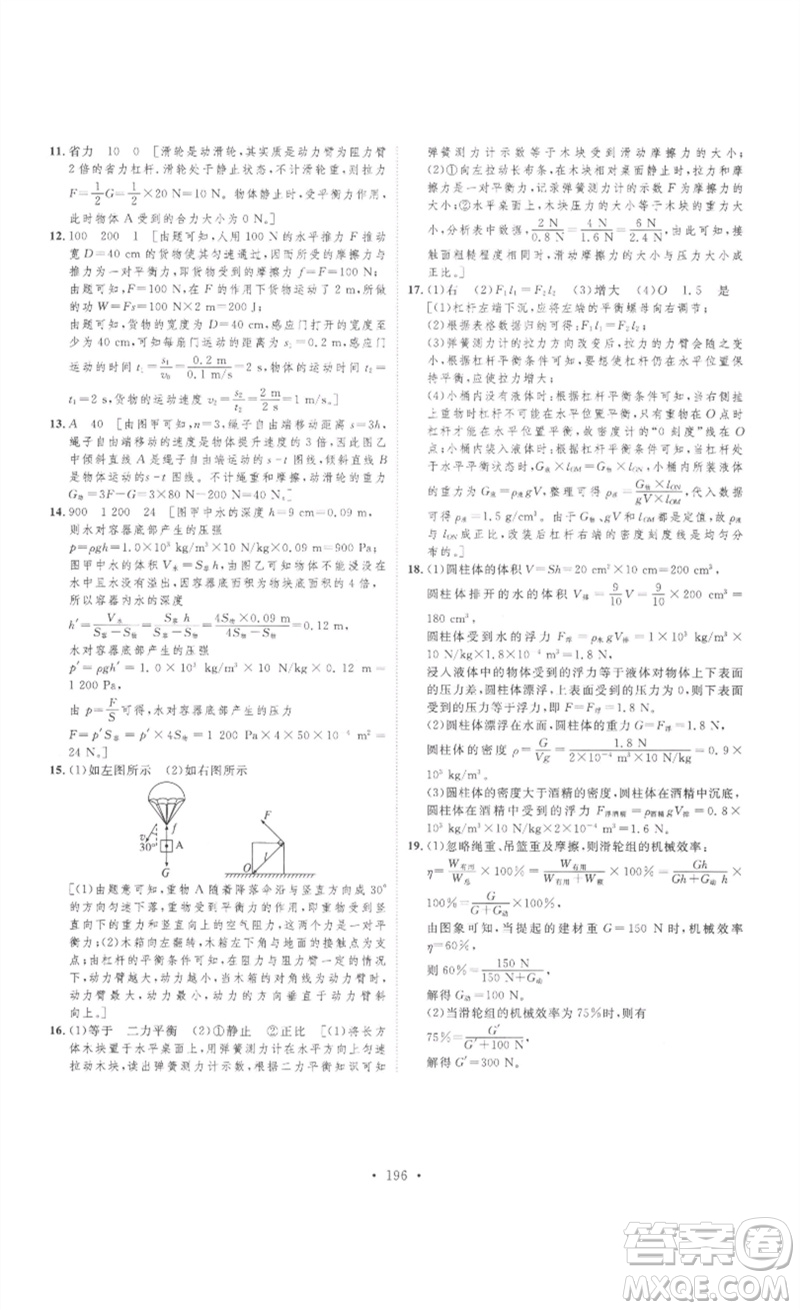 11. 省力 10 0 [滑轮是动滑轮,其实质是动力臂为阻力臂
2倍的省力杠杆、滑轮处于静止状态,不计滑轮重,则拉力
F=1/2G=1/2×20 N=10 N。物体静止时,受平衡力作用,
此时物体 A 受到的合力大小为 0 N。]
12. 100 200 1 [由题可知,人用 100 N 的水平推力 F 推动
宽 D=40 cm 的货物使其匀速运动,货物受到的摩擦力与
推力为一对平衡力,货物受到的摩擦力 f=F=100 N;
由题可知,货物在 F 的作用下货物运动了 2 m,推力所做
的功 W=Fs=100 N×2 m=200 J;
由题图可知,货物的宽度为 D=40 cm,感应门打开的宽度
为 40 cm,可知每扇门运动的距离为 s₁=0.2 m,感应门
运动的时间 t₁=s₁/v₀=0.2 m/0.1 m/s=2 s,货物的运动时间 t₂=
t₁=2 s,货物的运动速度 v₂=s₂/t₂=2 m/2 s=1 m/s。]
13. A 40 [由图甲可知,n=3,绳子自由端移动距离 s=3h,
绳子自由端移动的速度是物体提升速度的 3 倍,故图乙
中绳子自由端运动的 s-t 图线,倾斜程度大的是 A,故 B
是物体运动的 s-t 图线。不计绳重和摩擦,动滑轮的重力
G动=3F-G=3×80 N-200 N=40 N。]
14. 900 1 200 24 [图甲中水的深度 h=9 cm=0.09 m,
则水对容器底部产生的压强
p=ρgh=1.0×10³ kg/m³×10 N/kg×0.09 m=900 Pa;
图甲中水的体积为 V水=S容h,由图乙可知物块没有浸没
在水中且水没有溢出,因为容器底面积为物块底面积的 4 倍,
所以容器内水的深度
h′=V水/S容-S物=S容h/S容-S物=4S物×0.09 m/4S物-S物=0.12 m,
水对容器底部产生的压强
p′=ρgh′=1.0×10³ kg/m³×10 N/kg×0.12 m=
1 200 Pa,
由 p=F/S可知,水对容器底部产生的压力
F=p′S容=p′×4S物=1 200 Pa×4×50×10⁻⁴ m²=
24 N。]
15. (1)如左图所示 (2)如右图所示
v
30°
f
A
G
F
l
O
[(1)由题意可知,重物 A 随着降落伞沿与竖直方向成 30°
的方向匀速下落,重物受到平衡力的作用,即物体受到竖
直向下的重力和竖直向上的空气阻力,这两个力是一对平
衡力;(2)木箱向左翻转,支点 O 应为左下角与地面的接触
点。由杠杆的平衡条件可知,在阻力与阻力臂一定时,
动力臂越大,动力越小,当木箱的对角线为动力臂时,动
力臂最大,动力最小,动力的方向垂直于动力臂斜
向上。]
16. (1)等于 二力平衡 (2)①静止 ②正比 [(1)将长方
体木块放置于水平桌面上,用弹簧测力计沿水平方向匀速
拉动木块,读出弹簧测力计示数,根据二力平衡知识可知
弹簧测力计示数等于木块受到的滑动摩擦力的大小;
(2)①向左拉动长布条,长木块相对桌面静止,摩擦力与拉
力是一对平衡力,记录弹簧测力计的示数 F 为滑动摩擦力
的大小;②木块在水平桌面上,木块压力的大小等于重力的大小,
分析数据,2 N/0.8 N=4 N/1.6 N=6 N/2.4 N,由此可知:在接
触面粗糙程度相同时,滑动摩擦力的大小与压力大小成
正比。]
17. (1)右 (2)F₁l₁=F₂l₂ (3)增大 (4)O 1.5 是
[(1)杠杆左端下沉,应将左端的平衡螺母向右调节;
(2)根据表格数据可知,F₁l₁=F₂l₂;
(3)弹簧测力计的拉力方向改变后,拉力的力臂会随之变
小,根据杠杆平衡条件可知,要使杠杆仍在水平位置平衡,
应使拉力增大;
(4)小桶内没有液体时,根据杠杆平衡条件可知,右侧挂
上重物时杠杆不能在水平位置平衡,只有重物在 O 点时
杠杆才能在水平位置平衡,故密度计的“0 刻度”线在 O
点;当小桶内装满液体时,根据杠杆平衡条件可知,
G液×lOM=G物×lON,小桶内所装液体
的重力为 G液=ρ液gV,整理可得 ρ液=G物×lON/gV×lOM,代入数
据可得 ρ液=1.5 g/cm³。由于 G物、gV 和 lOM 都是定值,故 ρ液
与 lON 成正比,改装后杠杆右端的密度刻度线是均匀分
布的。]
18. (1)圆柱体的体积 V=Sh=20 cm²×10 cm=200 cm³,
圆柱体排开的水的体积 V排=9/10V=9/10×200 cm³=
180 cm³,
圆柱体受到水的浮力 F浮=ρ水gV排=1.0×10³ kg/m³×10
N/kg×1.8×10⁻⁴ m³=1.8 N,
浸入液体中的物体受到的浮力等于液体对物体上下表面
的压力差,圆柱体漂浮,上表面受到的压力为 0,故下表面
受到的压力等于物体受到的浮力,即 F=F浮=1.8 N。
(2)圆柱体漂浮在水面,圆柱体的重力 G=F浮=1.8 N,
圆柱体的密度 ρ=G/Vg=1.8 N/2×10⁻⁴ m³×10 N/kg=0.9×
10³ kg/m³。
(3)圆柱体的密度大于酒精的密度,圆柱体在酒精中沉底,
圆柱体在酒精中的浮力 F浮酒精=ρ酒精gV排=0.8×
10³ kg/m³×10 N/kg×2×10⁻⁴ m³=1.6 N。
19. (1)忽略绳重、吊篮重及摩擦,则滑轮组的机械效率:
η=W有用/W总×100%=W有用/W有用+W额×100%=Gh/Gh+G动h×
100%=G/G+G动×100%,
由图象可知,当提起的建材重 G=150 N 时,机械效率
η=60%,
则 60%=150 N/150 N+G动×100%,
解得 G动=100 N。
(2)当滑轮组的机械效率为 75%时,则有
75%=G′/G′+100 N×100%,
解得 G′=300 N。
· 196 ·
答案卷
MXQE.COM